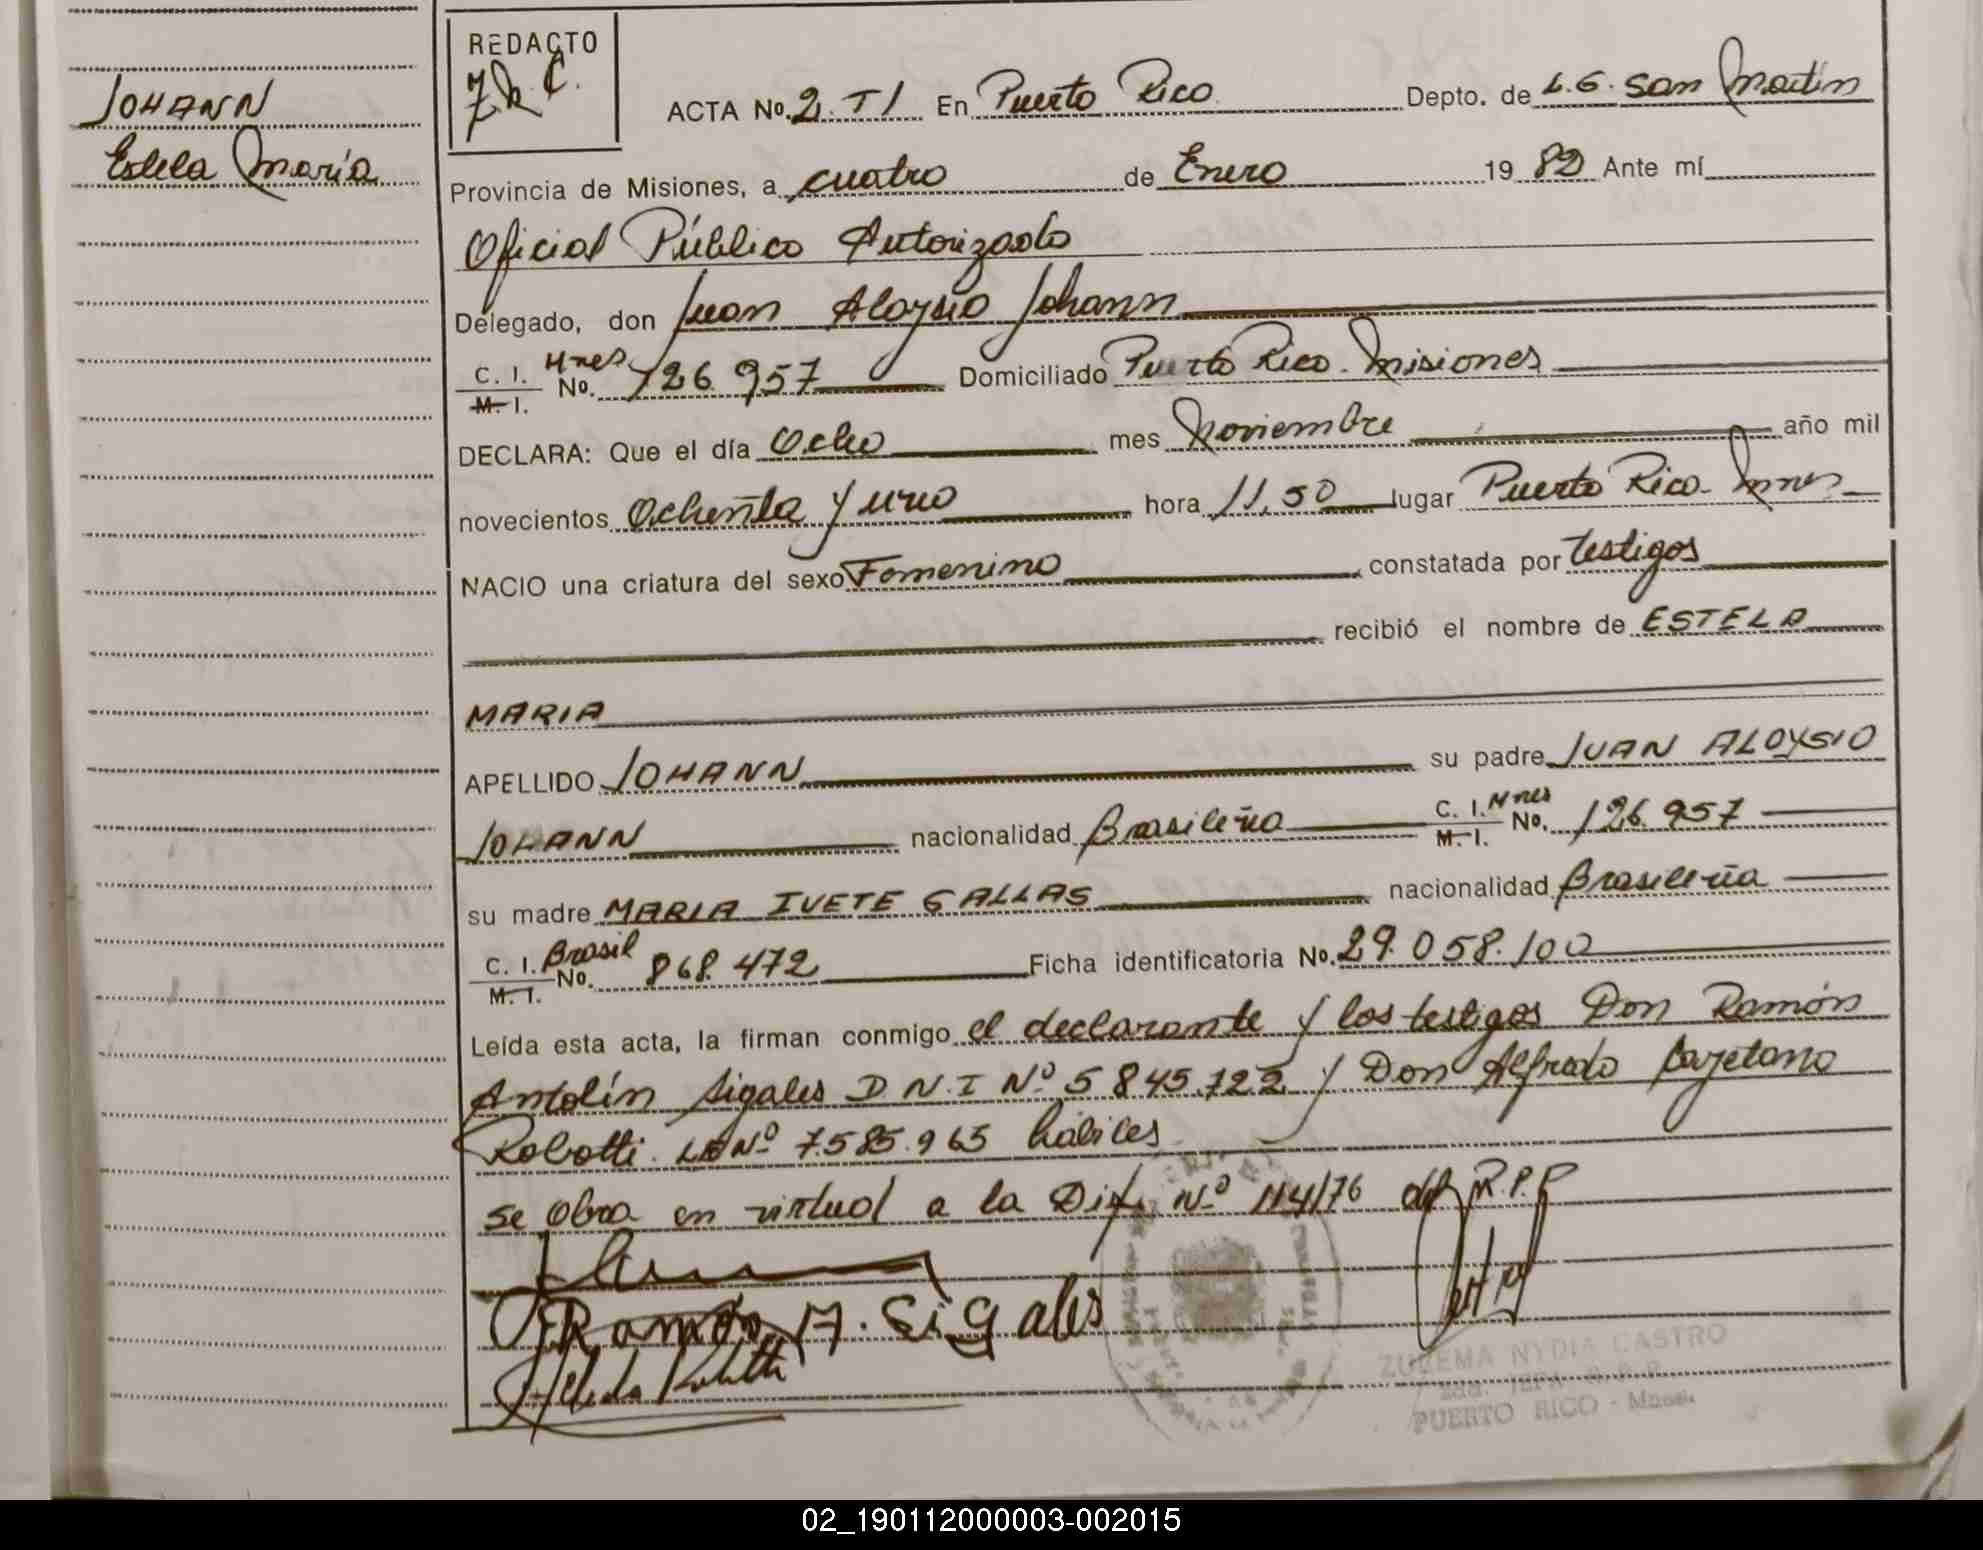 JOHANN
Estela María
REDACTO
ACTA No. 2. TI En Puerto Rico Depto. de L.G. San Martín
Provincia de Misiones, a cuatro de Enero 1982 Ante mí
Oficial Público Autorizado
Delegado, don Juan Aloysio Johann
C. I. Mnes No. 126.957 Domiciliado Puerto Rico. Misiones
M. I.
DECLARA: Que el día Ocho mes Noviembre año mil
novecientos Ochenta y uno hora 11,50 lugar Puerto Rico- Mnes
NACIO una criatura del sexo Femenino constatada por testigos
recibió el nombre de ESTELA
MARIA
APELLIDO JOHANN su padre JUAN ALOYSIO
JOHANN nacionalidad Brasileña C. I. Mnes No. 126.957
M. I.
su madre MARIA IVETE GALLAS nacionalidad Brasileña
C. I. Brasil No. 868.472 Ficha identificatoria No. 29.058.100
M. I.
Leída esta acta, la firman conmigo el declarante y los testigos Don Ramón
Antolín Sigales D N I Nº 5845.722 y Don Alfredo Cayetano
Robotti. LE Nº 7.585.965 hábiles
se obra en virtud a la Nº 114/76 del R.P.P
Ramón A. Sigales
ZULEMA NYDIA CASTRO
PUERTO RICO - Mnes.
02_190112000003-002015